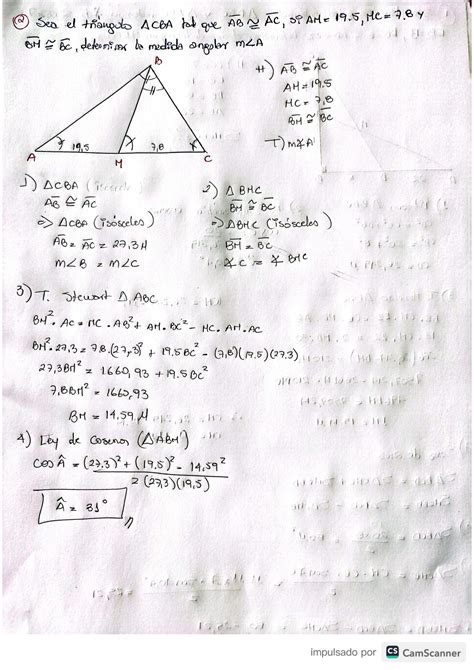 ② Sea el triángulo ΔCBA tal que AB ≅ AC, si AH = 19.5, HC = 7,8 y
BH ≅ BC, determinar la medida angular m∠A
B
19,5
7,8
A
H
C
H) AB ≅ AC
AH = 19.5
HC = 7,8
BH ≅ BC
T) m∡A
1) ΔCBA
AB ≅ AC
=> ΔCBA (isósceles)
AB = AC = 27,3 H
m∠B = m∠C
2) Δ BHC
BH ≅ BC
=> ΔBHC (isósceles)
BH = BC
∡C = ∡BHC
3) T. Stewart Δ ABC
BH². AC = HC . AB² + AH. BC² - HC. AH. AC
BH². 27,3 = 7.8.(27,3)² + 19,5 BC² - (7,8)(19.5)(27.3)
27,3BH² = 1660,93 + 19.5 BC²
7,8BH² = 1660,93
BH = 14.59 μ
4) Ley de Cosenos (ΔABH)
cos Â = (27,3)² + (19.5)² - 14,59²
2 (27,3)(19,5)
Â = 31°
impulsado por CS CamScanner